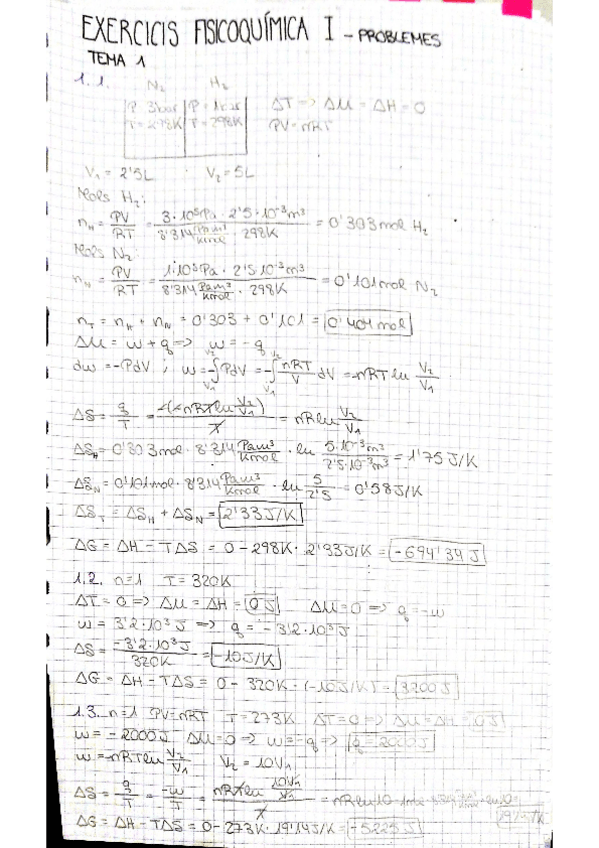 EXERCICIS FISICOQUÍMICA I - PROBLEMES
TEMA 1
1.1. N₂ H₂
P=3bar P=1bar ΔT => ΔU = ΔH = 0
T=298K T=298K PV=nRT
V₁ = 2'5L V₂ = 5L
Mols H₂:
n_H = PV/RT = 3·10⁵Pa · 2'5·10⁻³m³ / 8'314 Pa m³/K mol · 298K = 0'303 mol H₂
Mols N₂:
n_N = PV/RT = 1·10⁵Pa · 2'5·10⁻³m³ / 8'314 Pa m³/K mol · 298K = 0'101 mol N₂
n_T = n_H + n_N = 0'303 + 0'101 = 0'404 mol
ΔU = w + q => w = -q
dw = -PdV ; w = -∫PdV = -∫ nRT/V dV = -nRT ln V₂/V₁
ΔS = q/T = -(-nRT ln V₂/V₁) / T = nR ln V₂/V₁
ΔS_H = 0'303 mol · 8'314 Pa m³/K mol · ln 5·10⁻³m³ / 2'5·10⁻³m³ = 1'75 J/K
ΔS_N = 0'101 mol · 8'314 Pa m³/K mol · ln 5/2'5 = 0'58 J/K
ΔS_T = ΔS_H + ΔS_N = 2'33 J/K
ΔG = ΔH - TΔS = 0 - 298K · 2'33 J/K = -694'34 J
1.2. n=1 T=320K
ΔT = 0 => ΔU = ΔH = 0 J ΔU = 0 => q = -w
w = 3'2·10³ J => q = -3'2·10³ J
ΔS = -3'2·10³ J / 320K = -10 J/K
ΔG = ΔH - TΔS = 0 - 320K · (-10 J/K) = 3200 J
1.3. n=1 PV=nRT T=273K ΔT=0 => ΔU=ΔH=0J
w = -2000J ΔU=0 => w=-q => q=2000J
w = -nRT ln V₂/V₁ V₂ = 10V₁
ΔS = q/T = -w/T = nRT ln 10V₁/V₁ / T = nR ln 10 = 1mol · 8'314 · ln 10 =
19'14 J/K
ΔG = ΔH - TΔS = 0 - 273K · 19'14 J/K = -5225 J